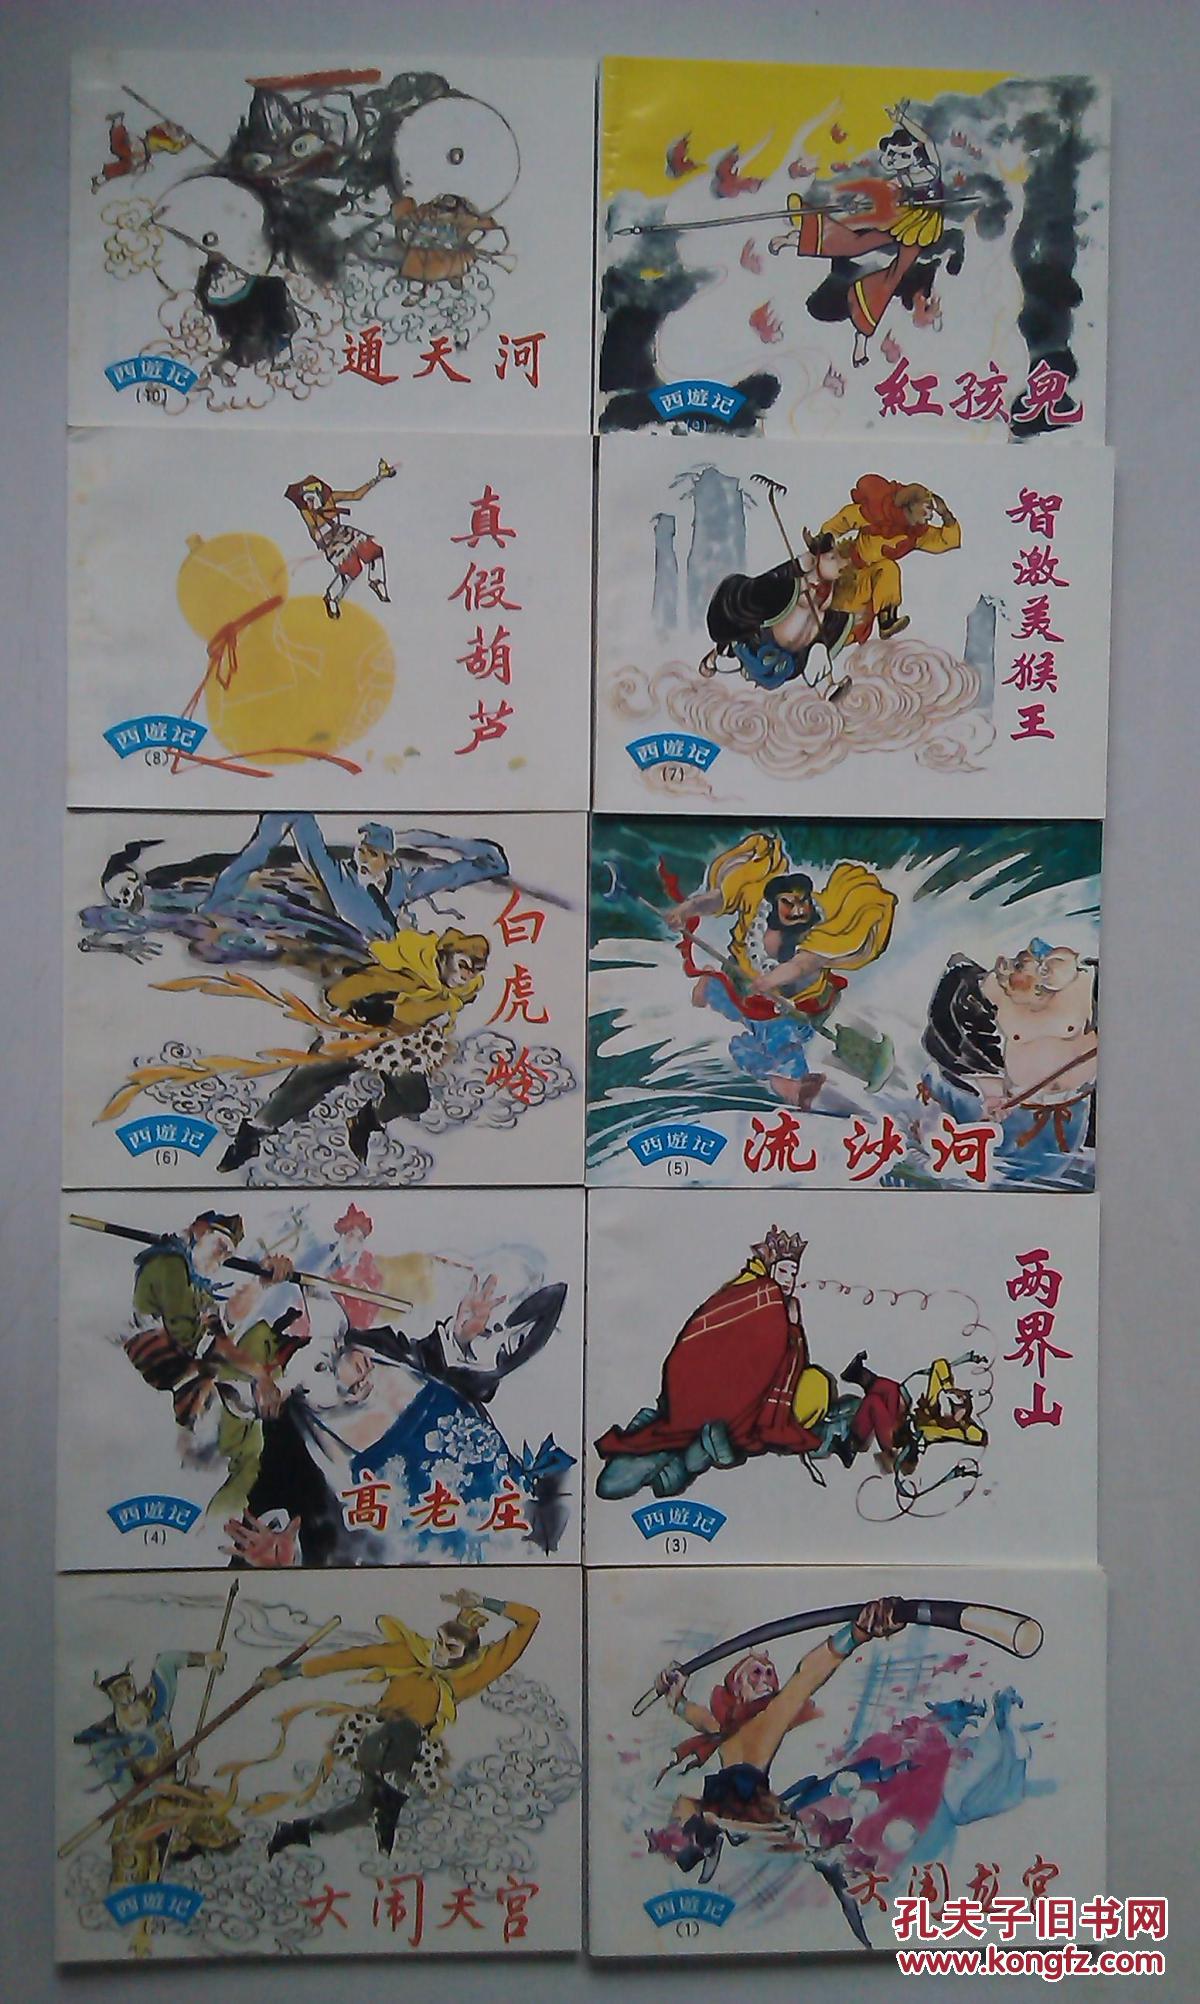 通天河
西遊记
(10)
紅孩兒
西遊记
(9)
真假葫芦
西遊记
(8)
智激美猴王
西遊记
(7)
白虎岭
西遊记
(6)
流沙河
西遊记
(5)
高老庄
西遊记
(4)
两界山
西遊记
(3)
大闹天宫
西遊记
(2)
大闹龙宫
西遊记
(1)
孔夫子旧书网
www.kongfz.com